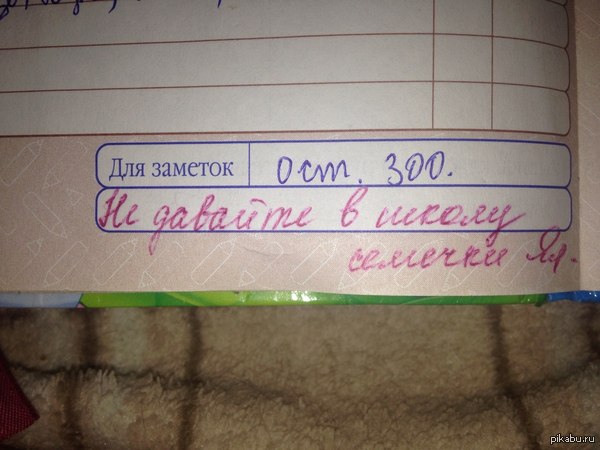 Для заметок ост. 300.
Не давайте в школу
семечки Ял.
pikabu.ru